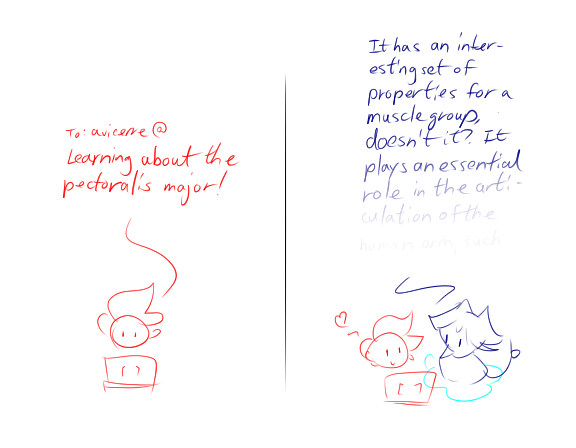 To: avicenne @
Learning about the
pectoralis major!
It has an inter-
esting set of
properties for a
muscle group,
doesn't it? It
plays an essential
role in the arti-
culation of the
human arm, such